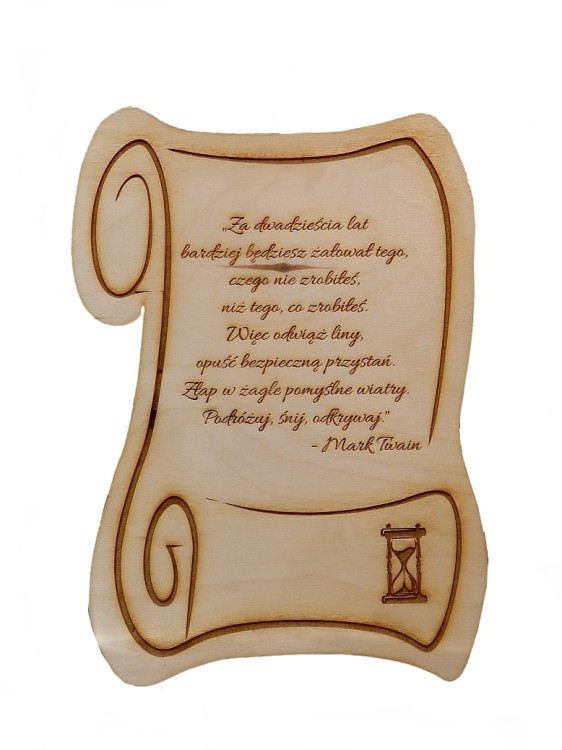 „Za dwadzieścia lat
bardziej będziesz żałował tego,
czego nie zrobiłeś,
niż tego, co zrobiłeś.
Więc odwiąż liny,
opuść bezpieczną przystań.
Złap w żagle pomyślne wiatry.
Podróżuj, śnij, odkrywaj."
- Mark Twain